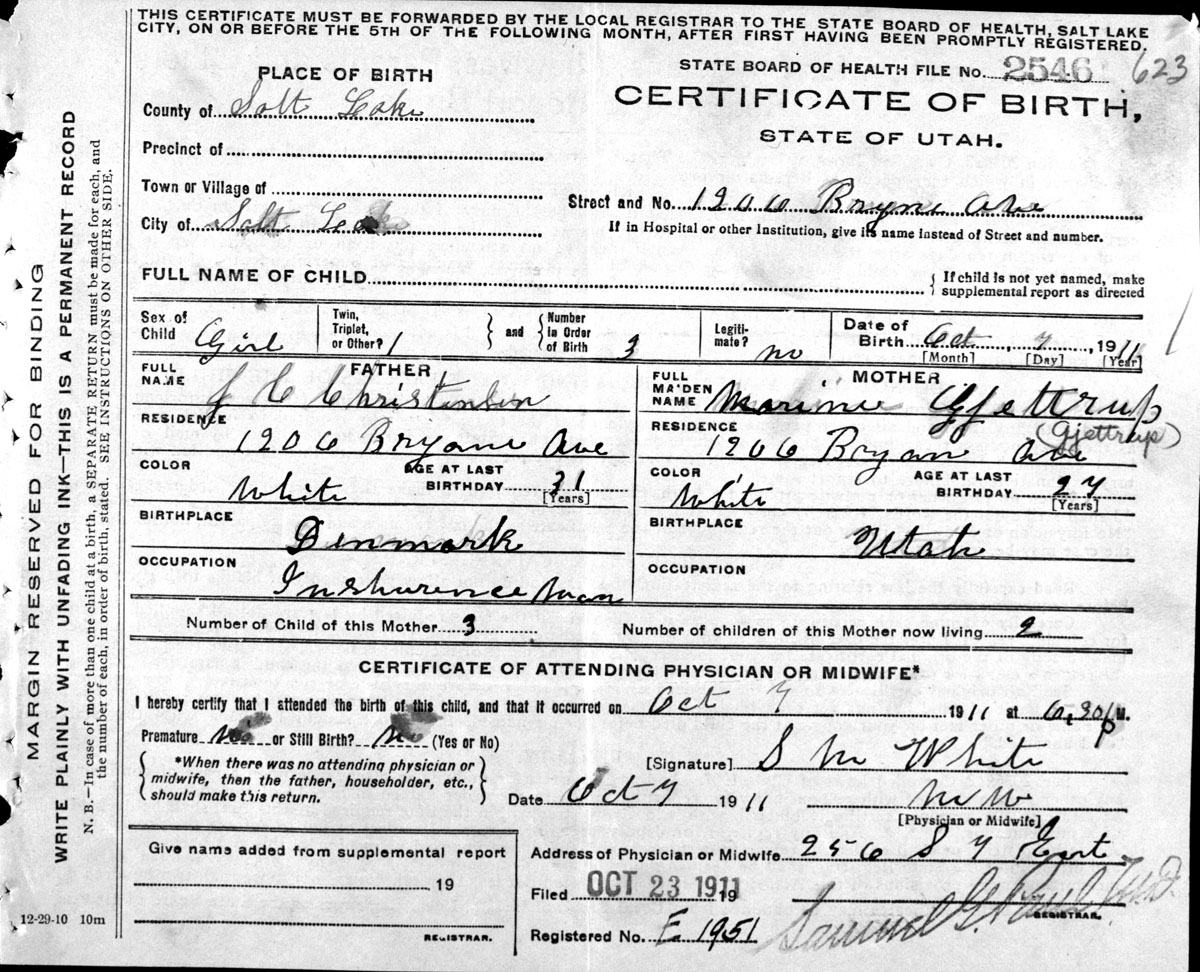 THIS CERTIFICATE MUST BE FORWARDED BY THE LOCAL REGISTRAR TO THE STATE BOARD OF HEALTH, SALT LAKE
CITY, ON OR BEFORE THE 5TH OF THE FOLLOWING MONTH, AFTER FIRST HAVING BEEN PROMPTLY REGISTERED.
STATE BOARD OF HEALTH FILE No. 2546 623
PLACE OF BIRTH
CERTIFICATE OF BIRTH,
STATE OF UTAH.
County of Salt Lake
Precinct of
Town or Village of
City of Salt Lake
Street and No. 1206 Bryne Ave
If in Hospital or other Institution, give its name instead of Street and number.
FULL NAME OF CHILD
If child is not yet named, make
supplemental report as directed
Sex of Child Girl
Twin, Triplet, or Other? 1
and Number in Order of Birth 3
Legitimate? no
Date of Birth Oct 7, 1911
[Month] [Day] [Year]
FATHER
FULL NAME J C Christensen
RESIDENCE
1206 Bryane Ave
COLOR White
AGE AT LAST BIRTHDAY 31
[Years]
BIRTHPLACE
Denmark
OCCUPATION
Inshurence man
MOTHER
FULL MAIDEN NAME Marinie Gjettrup
(Gjettrup)
RESIDENCE
1206 Bryan Ave
COLOR White
AGE AT LAST BIRTHDAY 27
[Years]
BIRTHPLACE
Utah
OCCUPATION
Number of Child of this Mother 3
Number of children of this Mother now living 2
CERTIFICATE OF ATTENDING PHYSICIAN OR MIDWIFE*
I hereby certify that I attended the birth of this child, and that it occurred on Oct 7 1911 at 6,30 p M.
Premature No or Still Birth? No (Yes or No)
*When there was no attending physician or
midwife, then the father, householder, etc.,
should make this return.
[Signature] S M White
Date Oct 7 1911
MW
[Physician or Midwife]
Give name added from supplemental report
19
REGISTRAR.
Address of Physician or Midwife 256 S 7 East
Filed OCT 23 1911 19
Samuel G. Paul M.D.
REGISTRAR.
Registered No. E 1951
12-29-10 10m
MARGIN RESERVED FOR BINDING
WRITE PLAINLY WITH UNFADING INK—THIS IS A PERMANENT RECORD
N. B.—In case of more than one child at a birth, a SEPARATE RETURN must be made for each, and
the number of each, in order of birth, stated. SEE INSTRUCTIONS ON OTHER SIDE.